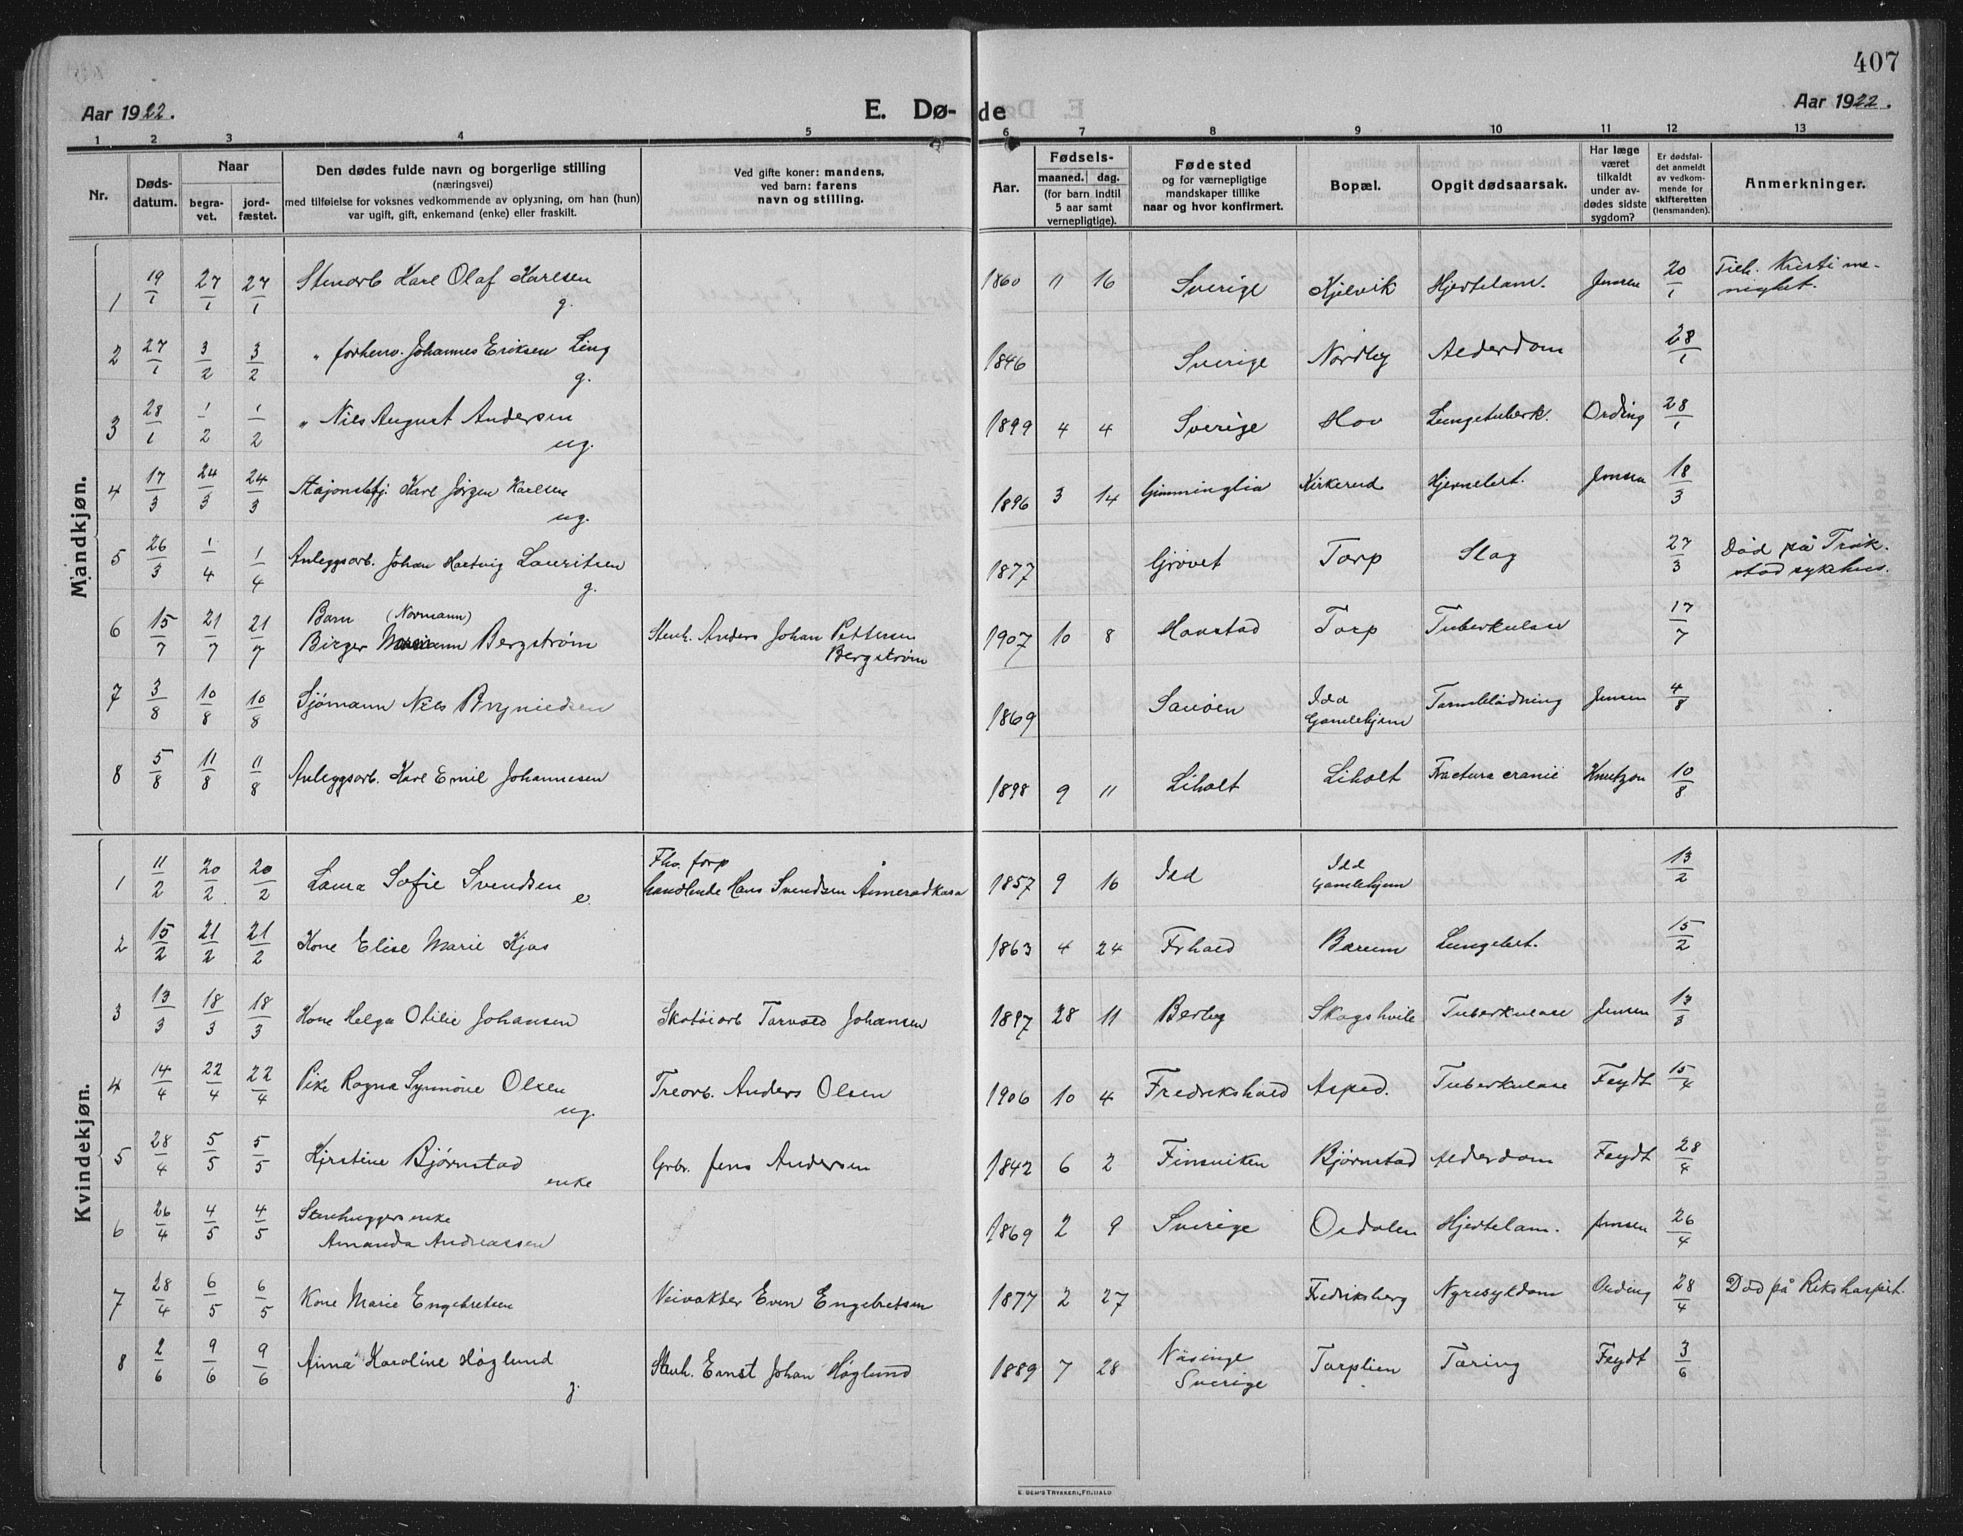 407
Aar 1922. E. Dø- de Aar 1922.
1 2 3 4 5 6 7 8 9 10 11 12 13
Nr. Døds-datum. Naar begra-vet. jord-fæstet. Den dødes fulde navn og borgerlige stilling (næringsvei) med tilføielse for voksnes vedkommende av oplysning, om han (hun) var ugift, gift, enkemand (enke) eller fraskilt. Ved gifte koner: mandens, ved barn: farens navn og stilling. Aar. Fødsels- maaned. dag. (for barn indtil 5 aar samt vernepligtige). Fødested og for værnepligtige mandskaper tillike naar og hvor konfirmert. Bopæl. Opgit dødsaarsak. Har læge været tilkaldt under av-dødes sidste sygdom? Er dødsfal-det anmeldt av vedkom-mende for skifteretten (lensmanden). Anmerkninger.
Mandkjøn.
1 19/1 27/1 27/1 Stenarb Karl Olaf Karlsen g. 1860 11 16 Sverige Kjelvik Hjertelam. Jensen 20/1 Tilh. Kristi me-nighet.
2 27/1 3/2 3/2 " forhenv. Johannes Eriksen Ling g. 1846 Sverige Nordby Alderdom 28/1
3 28/1 1/2 1/2 " Nils August Andersen ug. 1899 4 4 Sverige Hov Lungetuberk. Ording 28/1
4 17/3 24/3 24/3 Karl Jørgen Karlsen ug. 1896 3 14 Gimminglia Kirkerud Hjernebet. Jensen 18/3
5 26/3 1/4 1/4 Anleggsarb. Johan Hartvig Lauritsen g. 1877 Grøvet Torp Slag 27/3 Død på Trøk-stad sykehus.
6 15/7 21/7 21/7 Barn (Normann) Birger Bergstrøm Stenh. Anders Johan Pettersen Bergstrøm 1907 10 8 Hovstad Torp Tuberkulose 17/7
7 3/8 10/8 10/8 Sjømann Nils Brynildsen 1869 Sauøen Idd Gamlehjem Tarmblødning Jensen 4/8
8 5/8 11/8 11/8 Anleggsarb. Karl Emil Johannesen 1898 9 11 Liholt Liholt Fractura cranii Knutzon 10/8
Kvindekjøn.
1 11/2 20/2 20/2 Laura Sofie Svendsen e. Fhv. forp handlende Hans Svendsen 1857 9 16 Idd Idd Gamlehjem 13/2
2 15/2 21/2 21/2 Kone Elise Marie Kjøs 1863 4 24 Frhald Bærum Lungebet. 15/2
3 13/3 18/3 18/3 Kone Helga Otilie Johansen Skotøiarb Torvald Johansen 1897 28 11 Berby Skogshvile Tuberkulose Jensen 13/3
4 14/4 22/4 22/4 Pike Ragna Synnøve Olsen ug. Treorb. Anders Olsen 1906 10 4 Fredrikshald Asped. Tuberkulose Feydt 15/4
5 28/4 5/5 5/5 Kjrstine Bjørnstad enke Grbr. Jens Andersen 1842 6 2 Finsviken Bjørnstad Alderdom Feydt 28/4
6 26/4 4/5 4/5 Stenhuggers enke Amanda Andreassen 1869 2 9 Sverige Ordalen Hjertelam. Jensen 26/4
7 28/4 6/5 6/5 Kone Marie Engebretsen Veivokter Even Engebretsen 1877 2 27 Fredriksberg Nyresykdom Ording 28/4 Død på Rikshospit.
8 2/6 9/6 9/6 Anna Karoline Høglund g. Stenh. Ernst Johan Høglund 1889 7 28 Näsinge Sverige Torplien Tæring Feydt 3/6
E. SEM'S TRYKKERI, FR.HALD